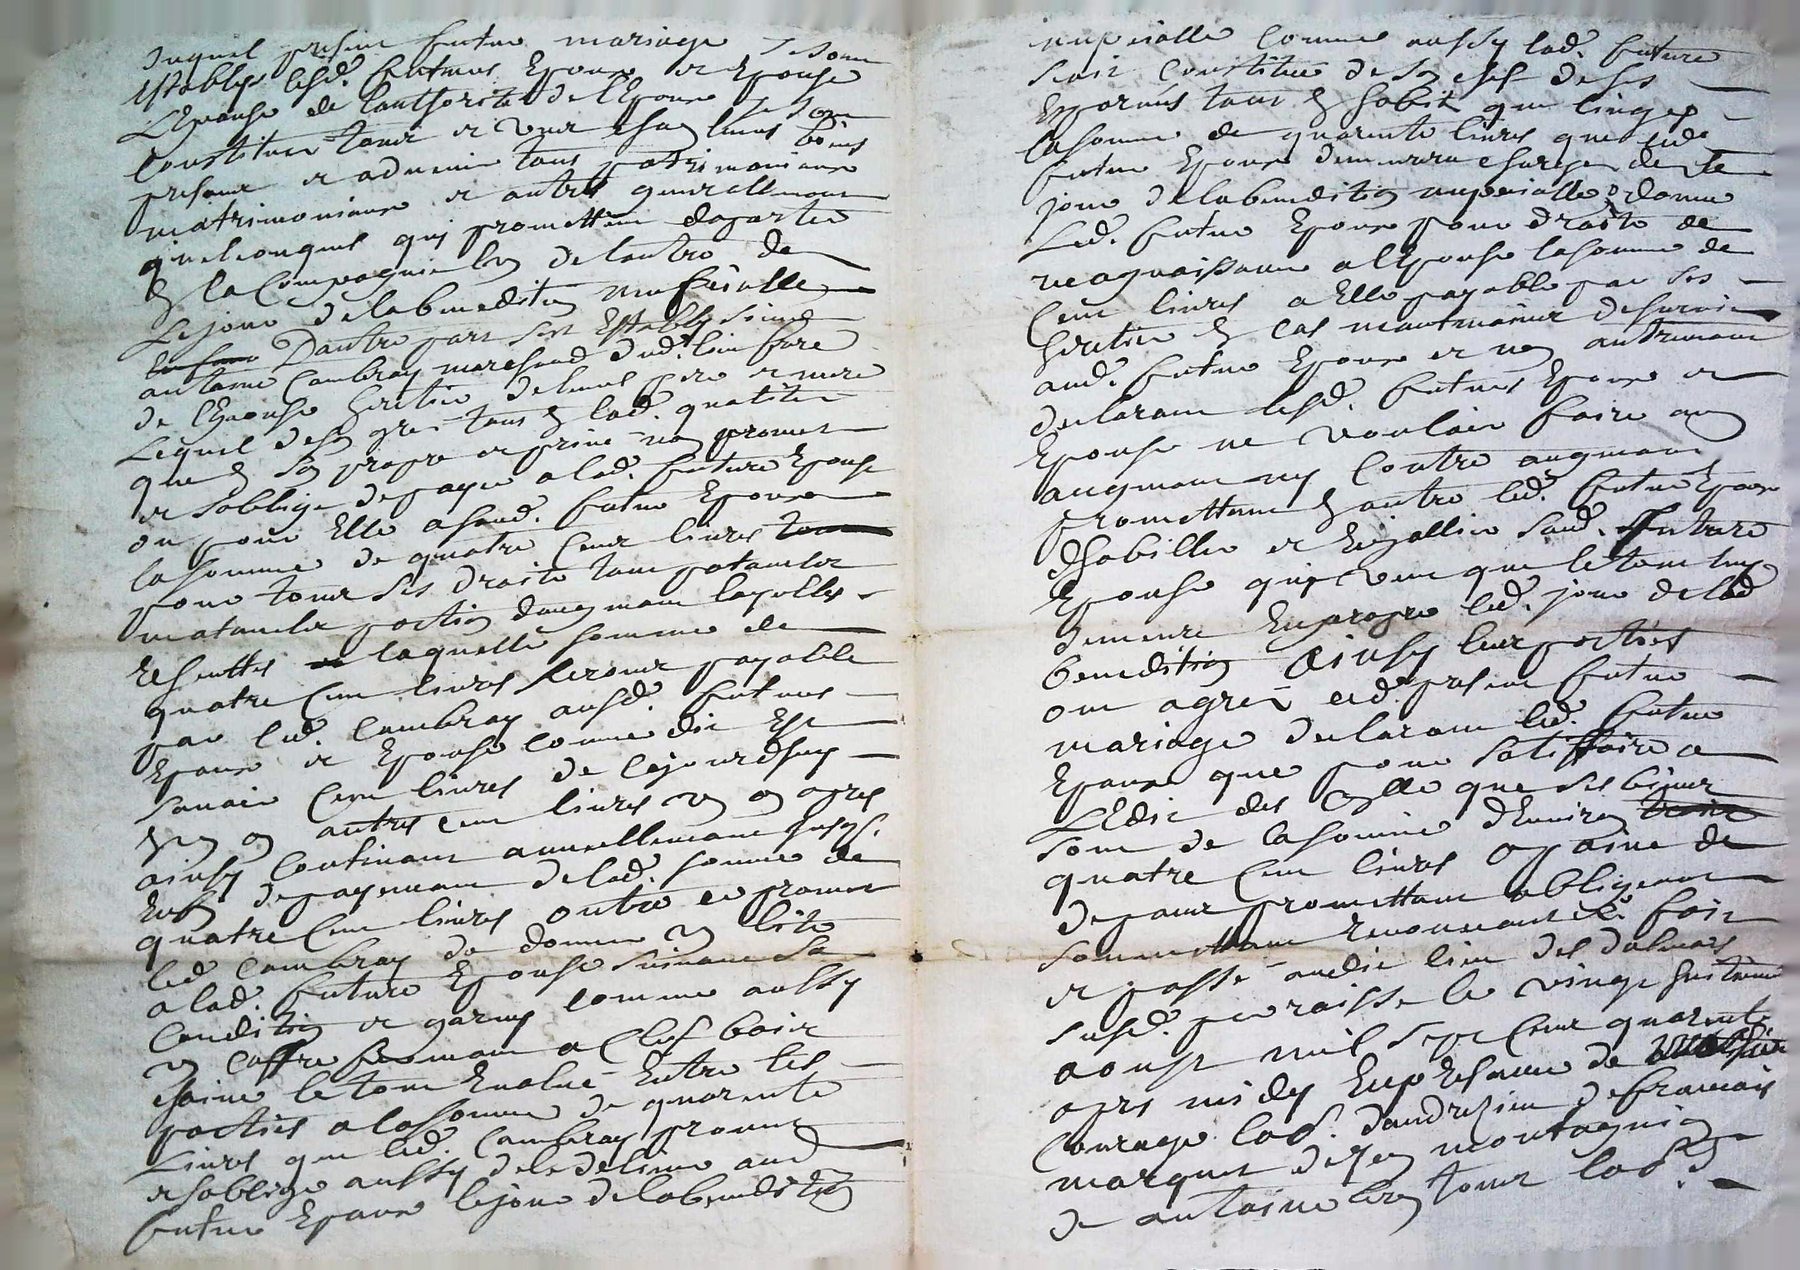 duquel present futur mariage se sont
establys lesd. futurs Epoux et Epouse
L'Epouse de l'authorité de l'Epoux se sont
constitués tous et un chacun leurs biens
presant et advenir tant patrimoniaux
matrimoniaux et autres generallement
quelconques qui promettent daporter
en la Compagnie lun de lautre
Le jour de la benediction nupcialle
Dautre part sest Estably sieur
antoine Cambray marchand dud. lieu frere
de l'Epouse heritier de leurs pere et mere
Lequel de son gré tant en lad. qualité
que en son propre et privé nom promet
et soblige de payer a lad. future Epouse
ou pour Elle ausd. futur Epoux
la somme de quatre cent livres
pour tous ses droits tant paternels
maternels portion daugmant
laquelle somme de
quatre cent livres seront payable
par led. Cambray ausd. futurs
Epoux et Epouse comme dit Est
savoir cent livres de cejourdhuy
en un an autres cent livres un an apres
ainsy continant annuellement jusqs.
de payement de lad. somme de
quatre cent livres outre ce promet
led Cambray de donner un lit
a lad. future Epouse suivant sa
condition et garny comme aussy
un coffre fermant a Clef bois
chaine le tout Evalué Entre les
parties a la somme de quarente
Livres que led. Cambray promet
et soblige aussy de delivrer aud
futur Epoux le jour de la benediction
nupcialle comme aussy lad. future
sest constitué de son chef de ses
Epargnes tant en habit que linges
la somme de quarente livres que led
futur Epoux demeurera chargé de le
jour de la benediction nupcialle donne
Led. futur Epoux pour droits de
recognoissance a l'Epouse la somme de
cent livres a Elle payable par ses
heritiers en cas de survie
aud. futur Epoux et non autrement
declarant lesd. futurs Epoux et
Epouse ne vouloir faire aucun
augmant ny contre augmant
promettant en outre led. futur Epoux
dhabiller et Enjoallier sad. future
Epouse qui veut que le tout luy
demeure En propre led. jour de lad
benediction Ainsy leur parties
ont agreé led. present futur
mariage declarant led. futur
Epoux que pour satisffaire a
L'Edit des Con.lle que ses biens
sont de la somme denviron
quatre cent livres a paine de
promettant obligeant
soumettant renonceant &c. fait
et passé audit lieu des
susd. parroisse le vingt huitieme
aoust mil sept cent quarente
apres midy En presance de
Courage lab. dandrezieu de francois
marquet de Jean montagnier
de antoine tous lab.rs